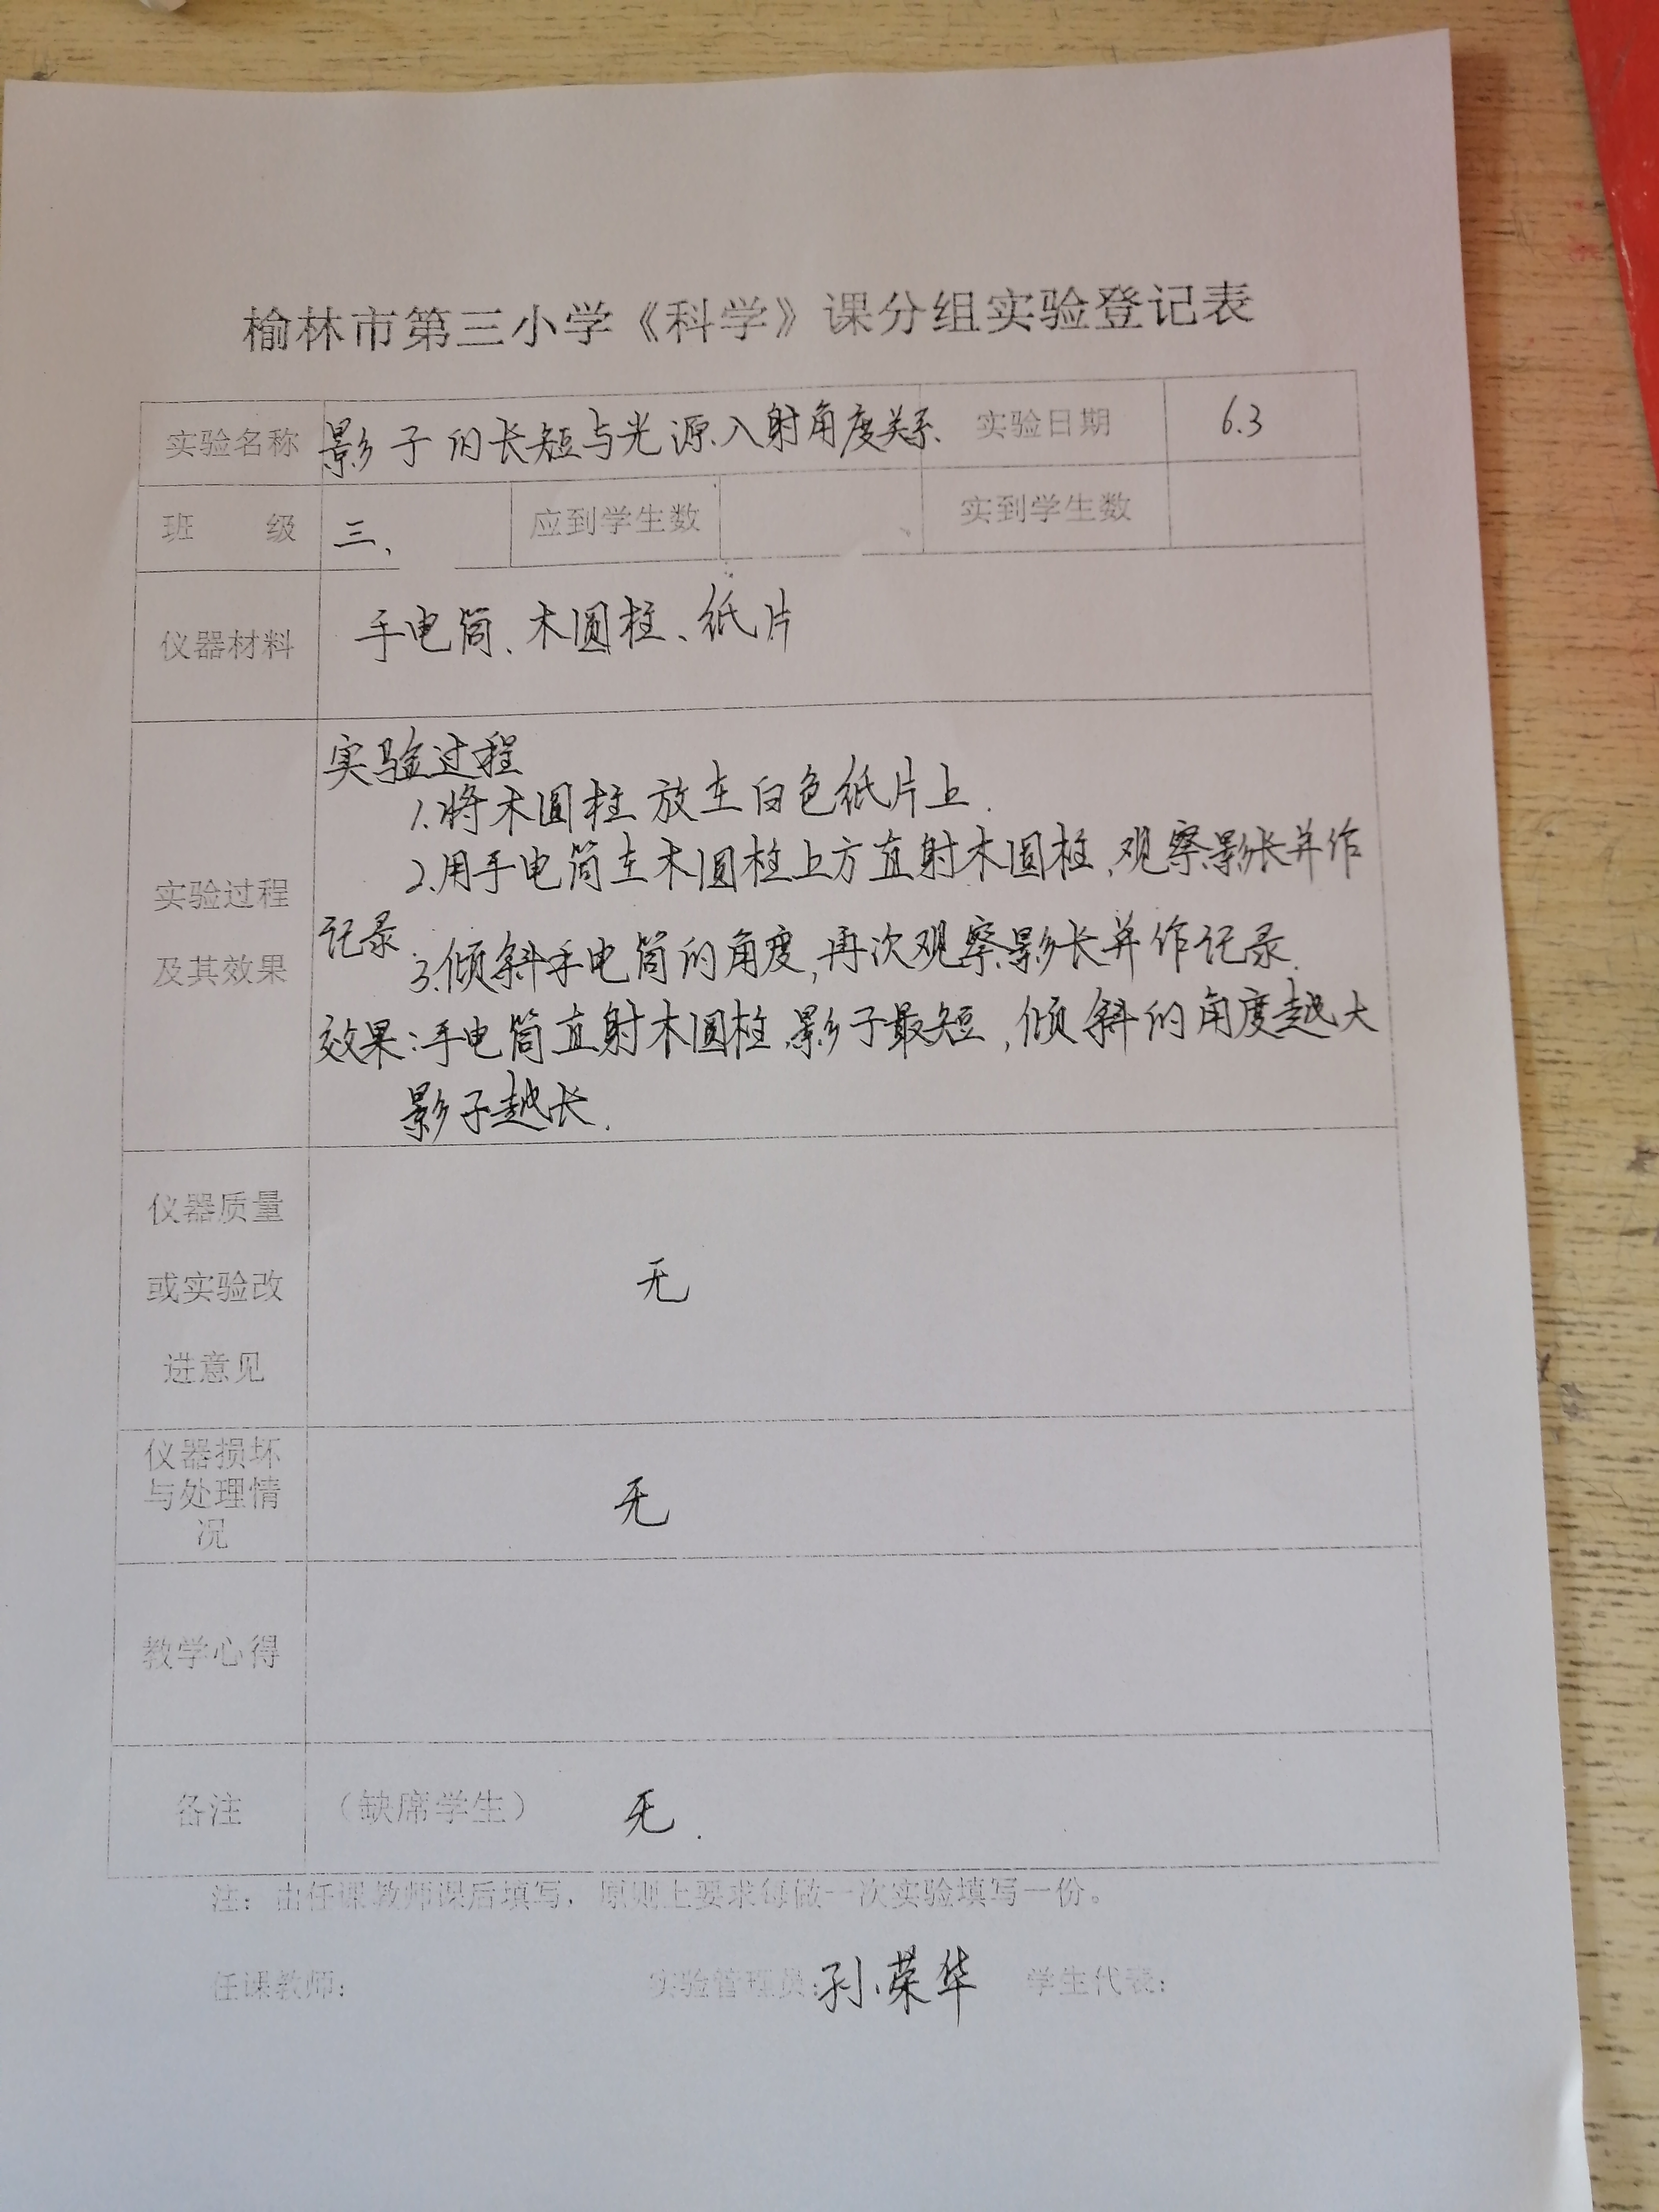 榆林市第三小学《科学》课分组实验登记表
实验名称 影子的长短与光源入射角度关系. 实验日期 6.3
班 级 三、 应到学生数 实到学生数
仪器材料 手电筒、木圆柱、纸片
实验过程
1.将木圆柱放在白色纸片上.
2.用手电筒在木圆柱上方直射木圆柱,观察影长并作
实验过程
记录
及其效果 3.倾斜手电筒的角度,再次观察影长并作记录.
效果:手电筒直射木圆柱,影子最短,倾斜的角度越大
影子越长.
仪器质量
或实验改 无
进意见
仪器损坏
与处理情 无
况
教学心得
备注 (缺席学生) 无.
注:由任课教师课后填写,原则上要求每做一次实验填写一份。
任课教师: 实验管理员:孙荣华 学生代表: